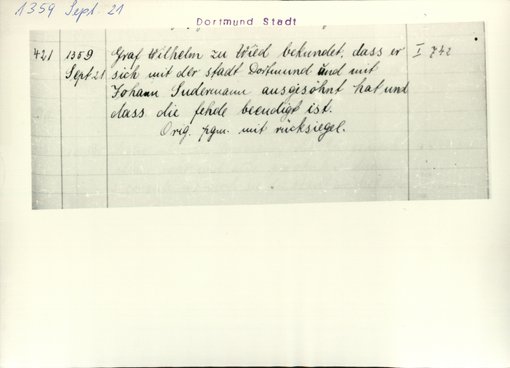 1359 Sept. 21
Dortmund Stadt
421 1359 Graf Wilhelm zu Wied bekundet, dass er I 742
Sept 21 sich mit der stadt Dortmund und mit
Johann Sudermann ausgesöhnt hat und
dass die fehde beendigt ist.
Orig. pgm. mit rücksiegel.